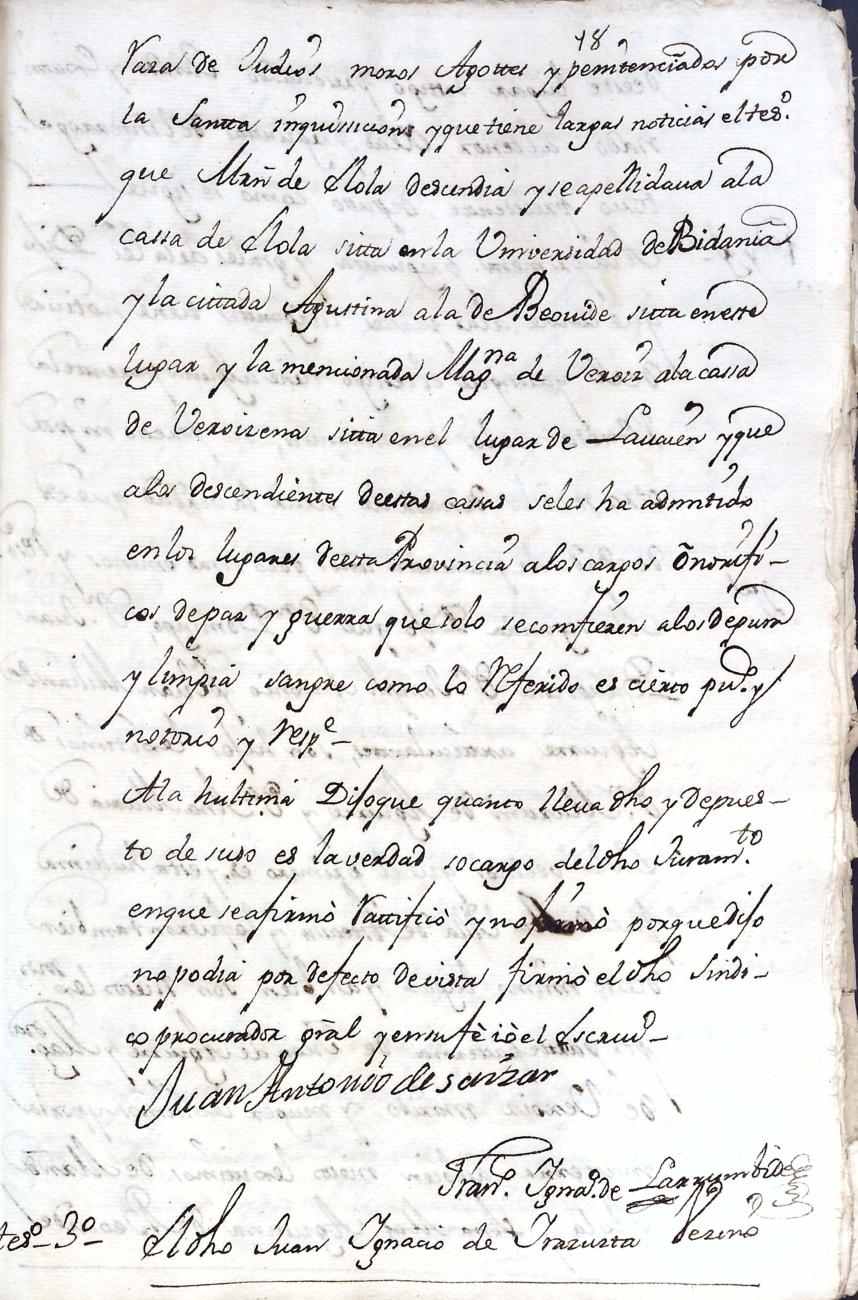 18
Raza de Judios moros Agottes y penitenciados por
la Santta inquisicion yque tiene largas noticias el tesº.
que Mrñ de Elola descendia y se apellidaua ala
cassa de Elola sitta en la Universidad de Bidania
y la cittada Agustina ala de Beouide sitta eneste
lugar y la mencionada Magna de Veroiz ala cassa
de Veroizena sitta en el lugar de Lauaien yque
alos descendientes deestas cassas seles ha admitido
en los lugares deesta Provincia alos cargos onorifi-
cos depaz y guerra que solo se confieren alos depura
y limpia sangre como lo Referido es cierto puco. y
notorio y Respe-
Ala hultima Dijoque quanto lleva dho y depues-
to de suso es la verdad socargo del dho Juramto.
enque seafirmò Rattificò y no firmò porque dijo
no podia por defecto de vista firmò el dho sindi-
co procurador gral y enfeè iò el Escriuo-
Juan Antonio de saizar
Franco. Ignao. de Larrumbide
tesº 3º El dho Juan Ignacio de Irazusta Vezino